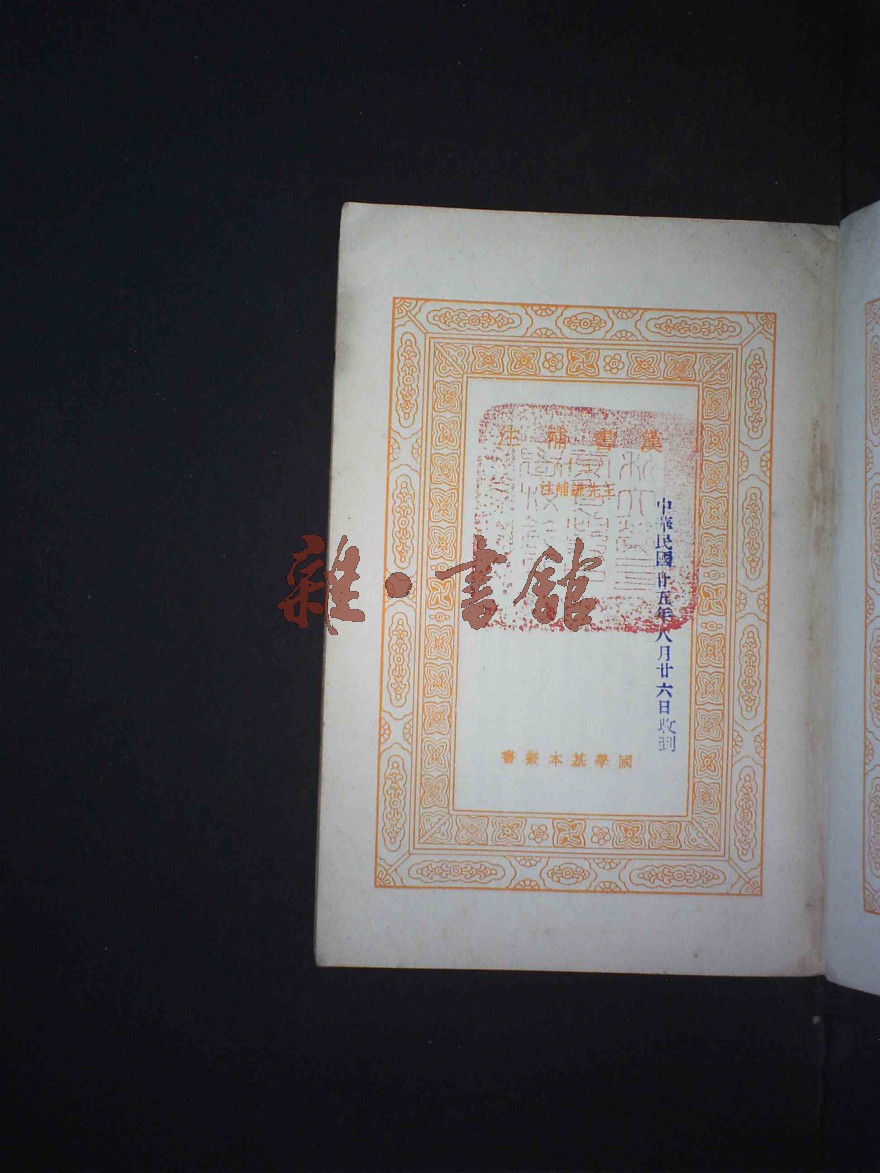 漢書補注
十
王先謙補注
中華民國廿五年八月廿六日收到
雜·書館
國學基本叢書